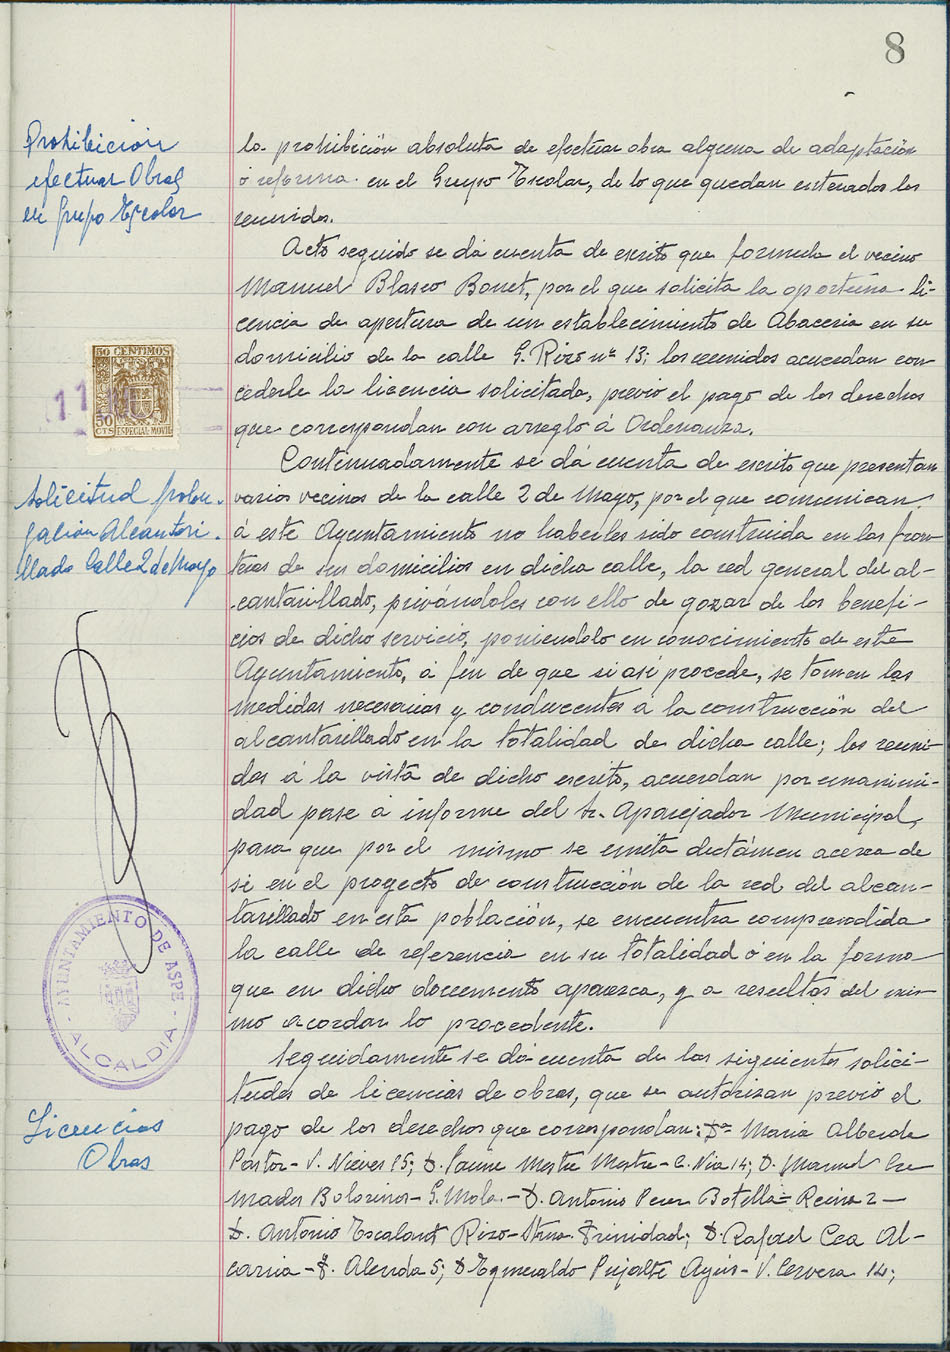 8
Prohibición
efectuar Obras
en Grupo Escolar
la prohibición absoluta de efectuar obra alguna de adaptación
ó reforma en el Grupo Escolar, de lo que quedan enterados los
reunidos.
Acto seguido se dá cuenta de escrito que formula el vecino
Manuel Blasco Bonet, por el que solicita la oportuna li-
cencia de apertura de un establecimiento de Abaceria en su
domicilio de la calle G. Rizo nº 13; los reunidos acuerdan con-
cederle la licencia solicitada, previo el pago de los derechos
que correspondan con arreglo á Ordenanza.
50 CENTIMOS
50
CTS
ESPECIAL MOVIL
11
Solicitud prolon-
gación Alcantari-
llado Calle 2 de Mayo
Continuadamente se dá cuenta de escrito que presentan
varios vecinos de la calle 2 de Mayo, por el que comunican
á este Ayuntamiento no haberles sido construida en las fron-
teras de sus domicilios en dicha calle, la red general del al-
cantarillado, privándoles con ello de gozar de los benefi-
cios de dicho servicio, poniendolo en conocimiento de este
Ayuntamiento, á fin de que si asi procede, se tomen las
medidas necesarias y conducentes á la construcción del
alcantarillado en la totalidad de dicha calle; los reuni-
dos á la vista de dicho escrito, acuerdan por unanimi-
dad pase á informe del Sr. Aparejador Municipal,
para que por el mismo se emita dictámen acerca de
si en el proyecto de construcción de la red del alcan-
tarillado en esta población, se encuentra comprendida
la calle de referencia en su totalidad ó en la forma
que en dicho documento aparezca, y a resultas del mis-
mo acordar lo procedente.
AYUNTAMIENTO DE ASPE
- ALCALDIA -
Licencias
Obras
Seguidamente se dá cuenta de las siguientes solici-
tudes de licencias de obras, que se autorizan previo el
pago de los derechos que correspondan: Dª Maria Alberde
Pastor- V. Nieves 15; D. Jaime Mestre Mestre- C. Nia 14; D. Manuel Cre-
mades Bolorinos- G. Mola.- D. Antonio Perez Botella= Reina 2-
D. Antonio Escalant Rizo- Stma. Trinidad; D. Rafael Cea Al-
carria- F. Alenda 5; D Esmeraldo Pujalte Ayús- V. Cervera 14;